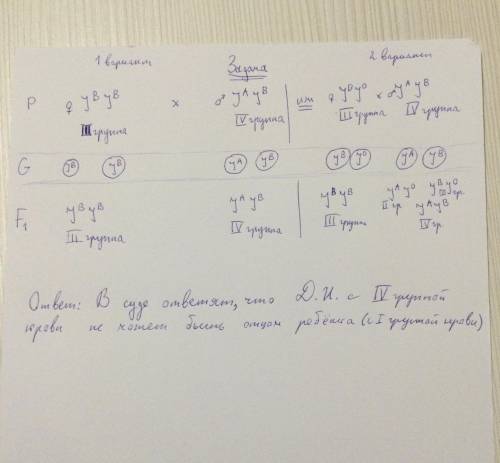 1 вариант Задача 2 вариант
P ♀ J^B J^B x ♂ J^A J^B или ♀ J^B J^O x ♂ J^A J^B
III группа IV группа III группа IV группа
G J^B J^B J^A J^B J^B J^O J^A J^B
F₁ J^B J^B J^A J^B J^B J^B J^A J^O J^B J^O
III группа IV группа III группа II гр. III гр.
J^A J^B
IV гр.
Ответ: В суде ответят, что Д.И. с IV группой
крови не может быть отцом ребёнка (с I группой крови)